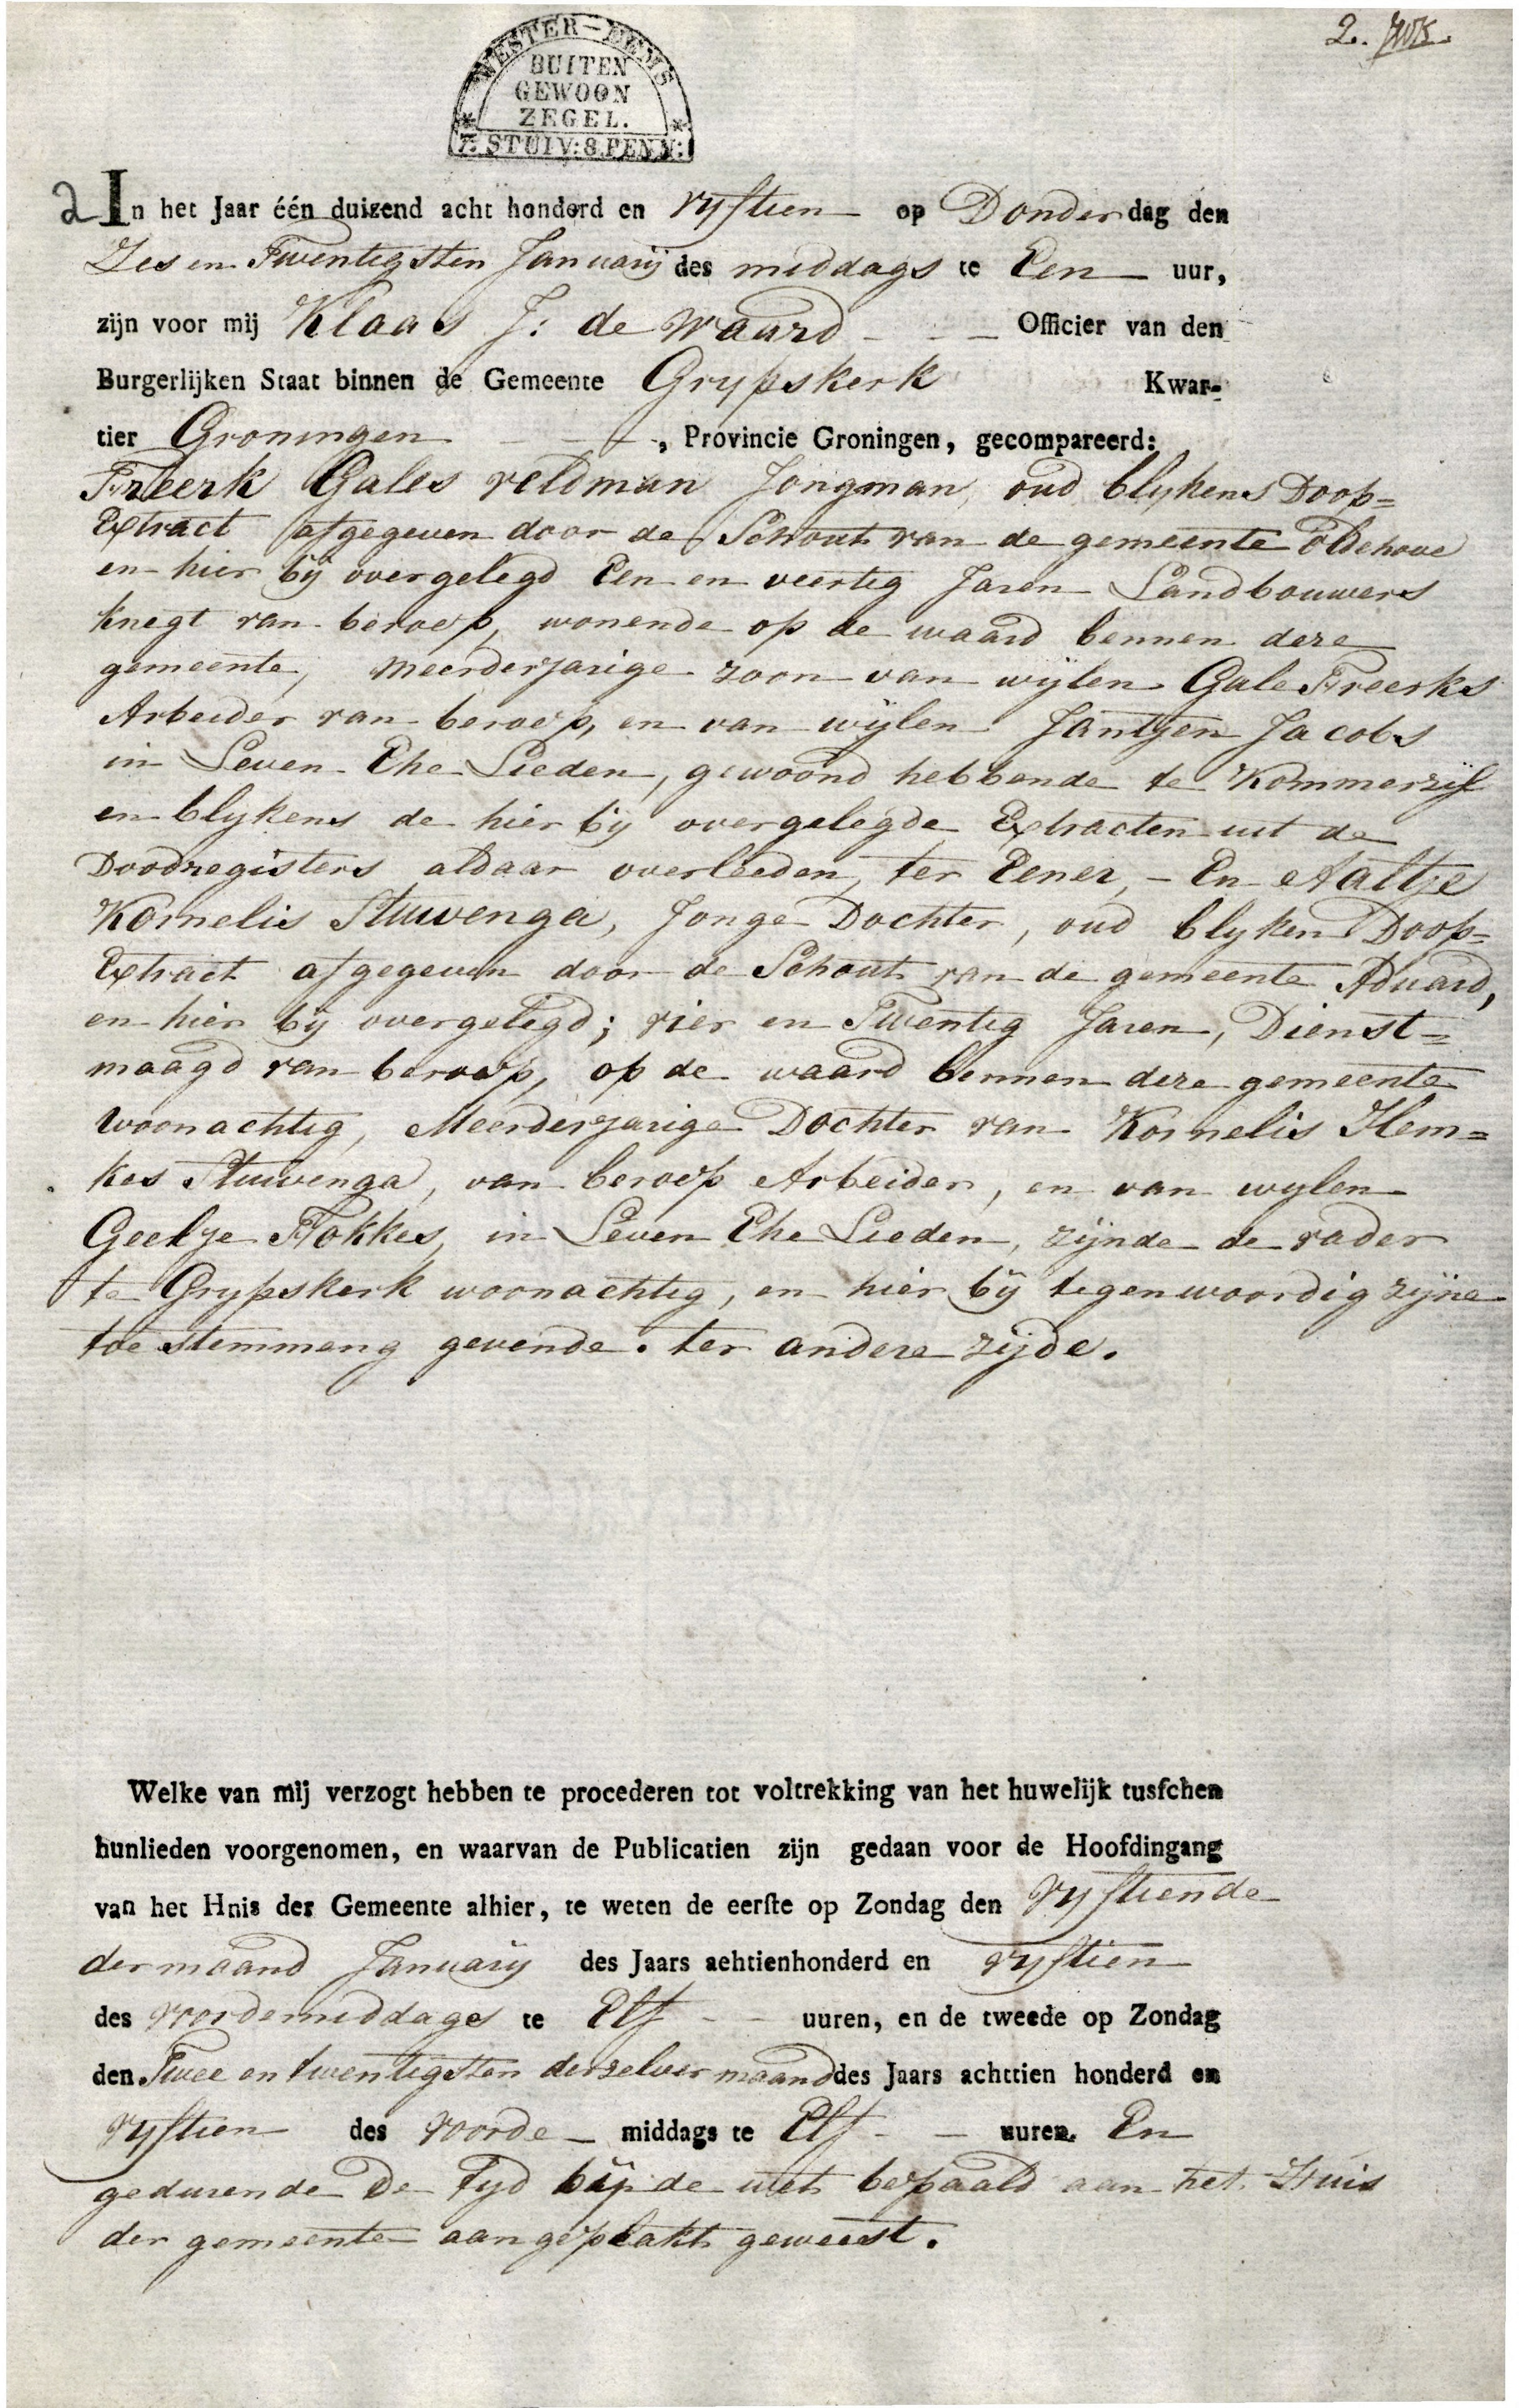 2.
WESTER-EEMS
BUITEN
GEWOON
ZEGEL.
7. STUIV: 8. PENN:
2 In het Jaar één duizend acht honderd en vyftien op Donderdag den
Zes en Twentigsten January des middags te Een uur,
zijn voor mij Klaas J: de Waard Officier van den
Burgerlijken Staat binnen de Gemeente Grypskerk Kwar-
tier Groningen, Provincie Groningen, gecompareerd:
Freerk Gales veldman Jongman, oud blykens Doop=
Extract afgegeven door de Schout van de gemeente Oldehove
en hier bij overgelegd Een en veertig Jaren Landbouwers
knegt van beroep, wonende op de waard bennen deze
gemeente, meerderjarige zoon van wijlen Gale Freerks
Arbeider van beroep, en van wijlen Jantjen Jacobs
in Leven Ehe Lieden, gewoond hebbende te Kommerzijl
en blykens de hier bij overgelegde Extracten uit de
Doodregisters aldaar overleeden, ter Eener, - En Aaltje
Kornelis Stuivenga, Jonge Dochter, oud blyken Doop=
Extract afgegeven door de Schout van de gemeente Aduard,
en hier bij overgelegd; vier en Twentig Jaren, Dienst=
maagd van beroep, op de waard bennen deze gemeente
woonachtig, Meerderjarige Dochter van Kornelis Hem=
kes Stuivenga, van beroep Arbeider, en van wylen
Geelje Fokkes, in Leven Ehe Lieden, zijnde de vader
te Grypskerk woonachtig, en hier bij tegenwoordig zijne
toe stemmeng gevende. ter andere zijde.
Welke van mij verzogt hebben te procederen tot voltrekking van het huwelijk tusfchen
hunlieden voorgenomen, en waarvan de Publicatien zijn gedaan voor de Hoofdingang
van het Hnis der Gemeente alhier, te weten de eerfte op Zondag den vyftiende
der maand January des Jaars aehtienhonderd en vyftien
des voordemiddags te Elf uuren, en de tweede op Zondag
den Twee en twentigsten derzelver maand des Jaars achttien honderd en
vyftien des voorde middags te Elf uuren. En
gedurende De Tyd bij de wet bepaald aan het Huis
der gemeente aangeplakt geweest.